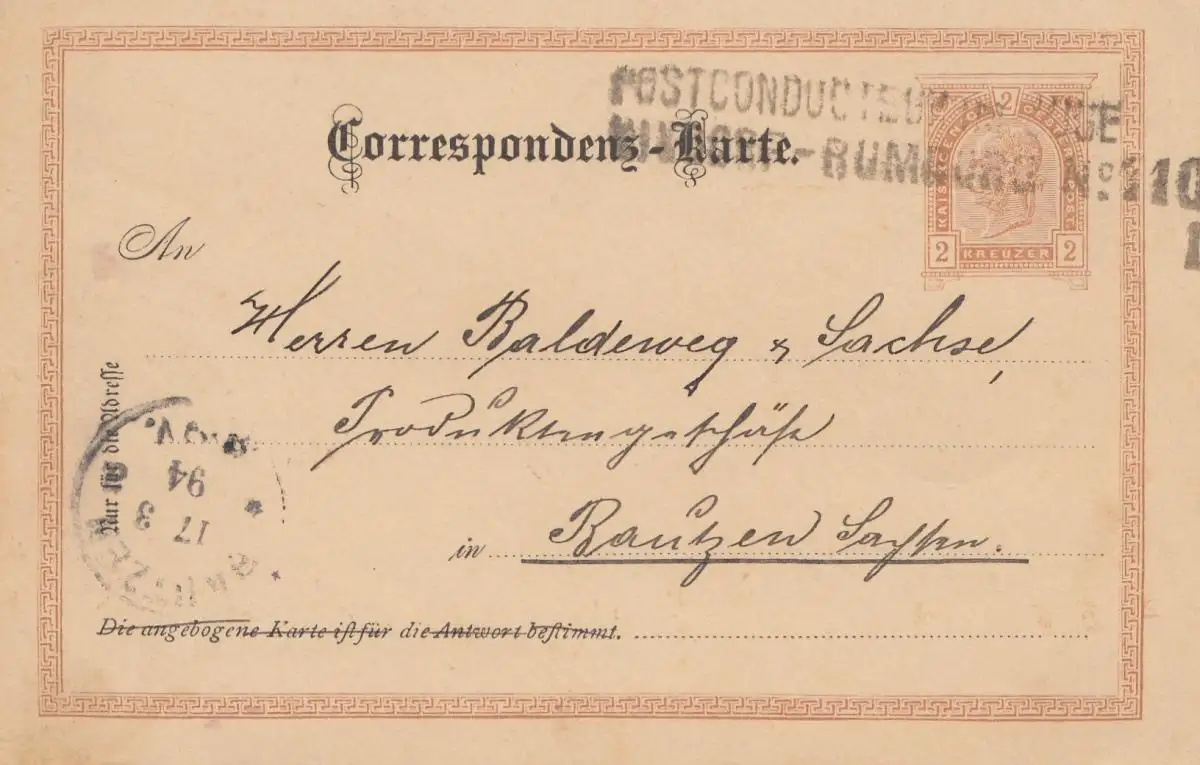 POSTCONDUCTEUR IM ZUGE
NIXDORF-RUMBURG Nº110
Correspondenz-Karte.
KAIS. KÖNIGL. OESTERR. POST.
2
2 KREUZER 2
An
Herren Baldeweg & Sachse,
Produktengeschäft
in Bautzen Sachsen.
Nur für die Adresse
BAUTZEN
17 3
94
Die angebogene Karte ist für die Antwort bestimmt.